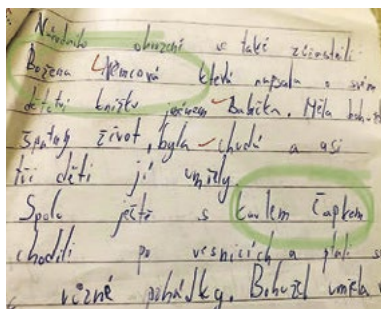 Národního obrození se také zúčastnili
Božena Němcová která napsala o svém
dětství knížku jménem Babička. Měla
špatný život, byla chudá a asi
tři děti jí umřely.
Spolu ještě s Karlem Čapkem
chodili po vesnicích a psali
různé pohádky. Bohužel umřela